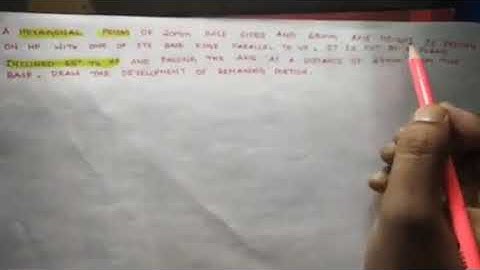 A HEXAGONAL PRISM OF 20MM BASE SIDES AND AXIS HEIGHT IS RESTING
ON HP WITH ONE OF ITS BASE EDGE PARALLEL TO VP. IT IS CUT BY PLANE
INCLINED TO HP AND PASSING THE AXIS AT A DISTANCE OF FROM THE
BASE. DRAW THE DEVELOPMENT OF REMAINING PORTION.